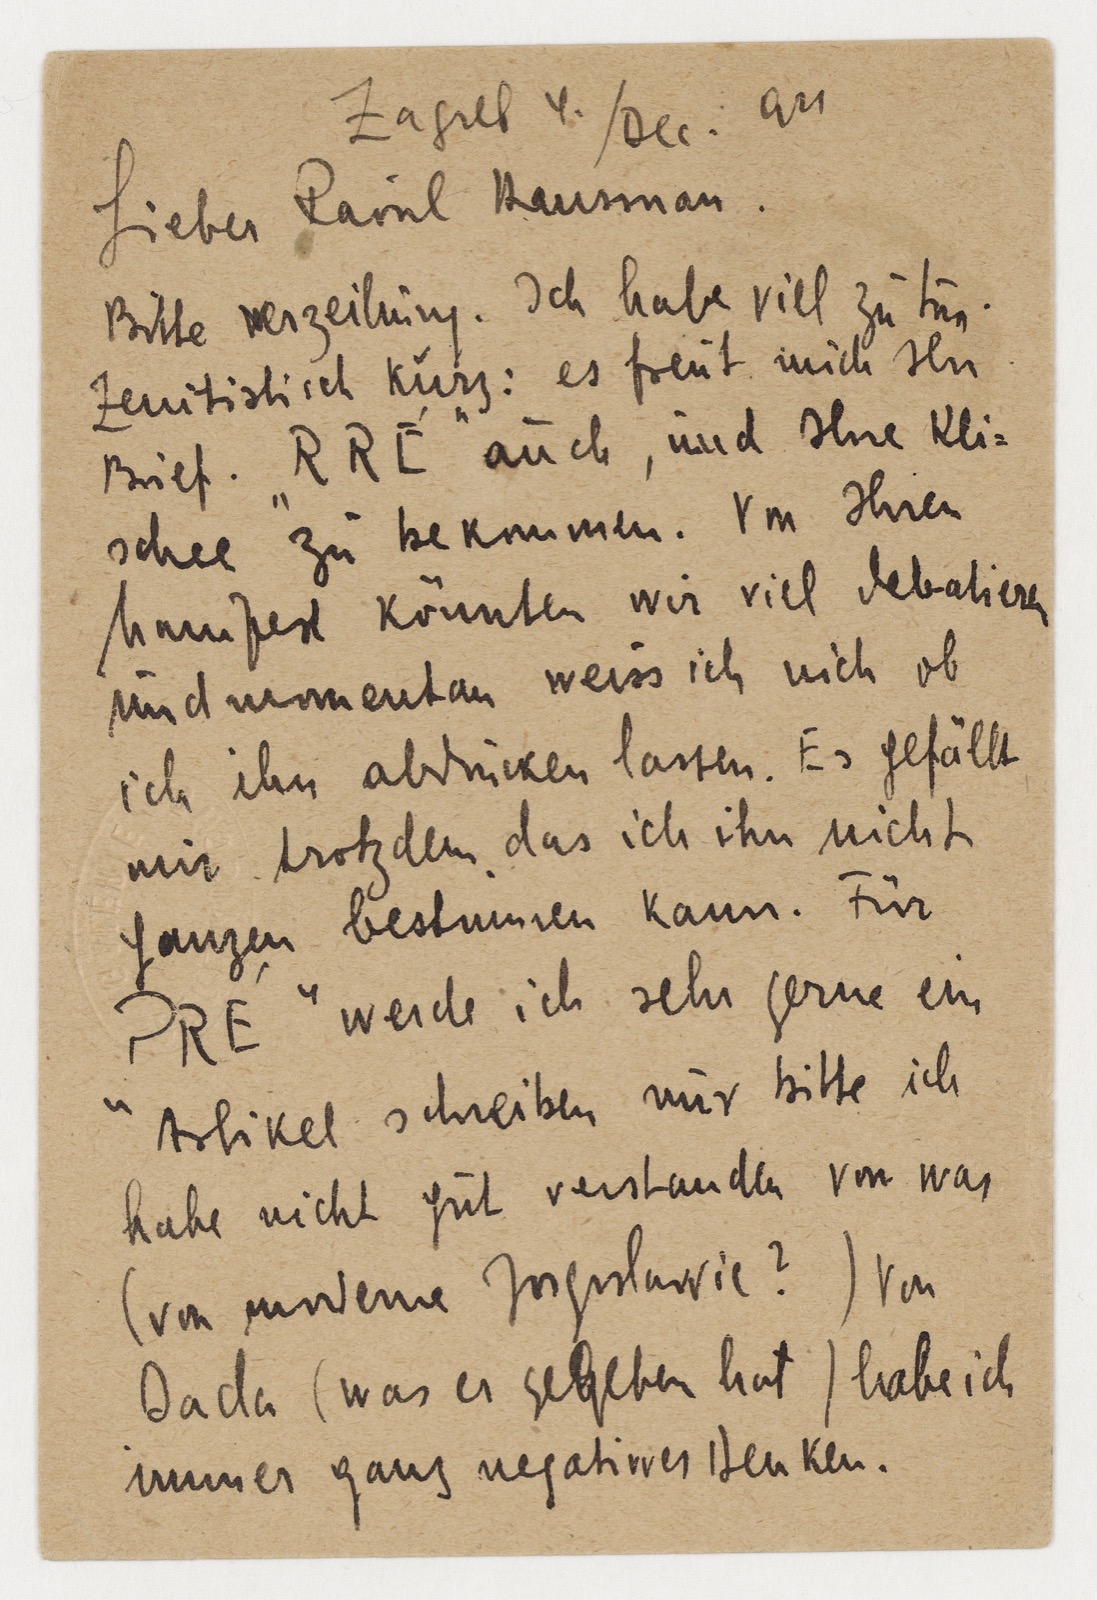 Zagreb 4. /Dec. 921
Lieber Raoul Hausman.
Bitte verzeihung. Ich habe viel zu tun.
Zenitistisch kurz: es freut mich Ihr
Brief. „RRÉ" auch, und Ihre Kli=
schee zu bekommen. Von Ihren
Manifest könnten wir viel debatieren
und momentan weiss ich nich ob
ich ihn abdrucken lassen. Es gefällt
mir trotzdem das ich ihn nicht
ganzen bestimmen kann. Für
„PRÉ" werde ich sehr gerne ein
Artikel schreiben nur bitte ich
habe nicht gut verstanden von was
(von moderne Jugoslawie?) Von
Dada (was er gegeben hat) habe ich
immer ganz negatives Denken.